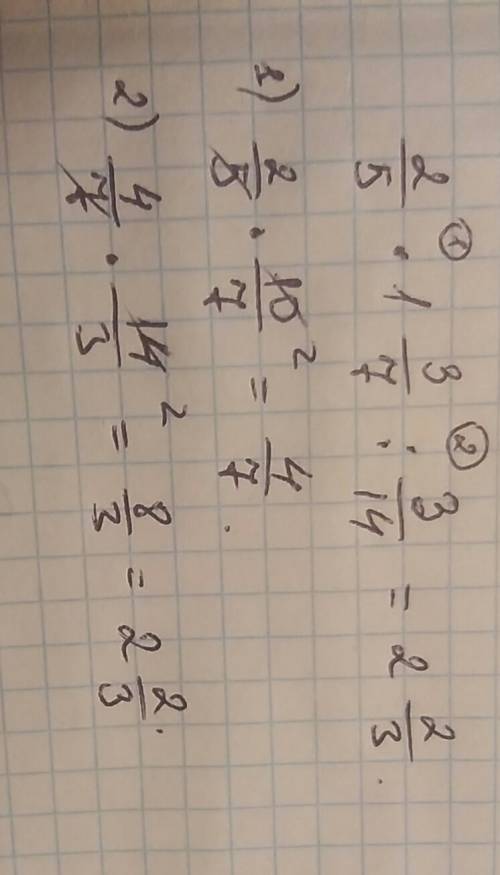 2/5 ① · 1 3/7 ② : 3/14 = 2 2/3.
1) 2/5 · 10/7 ² = 4/7.
2) 4/7 · 14/3 ² = 8/3 = 2 2/3.